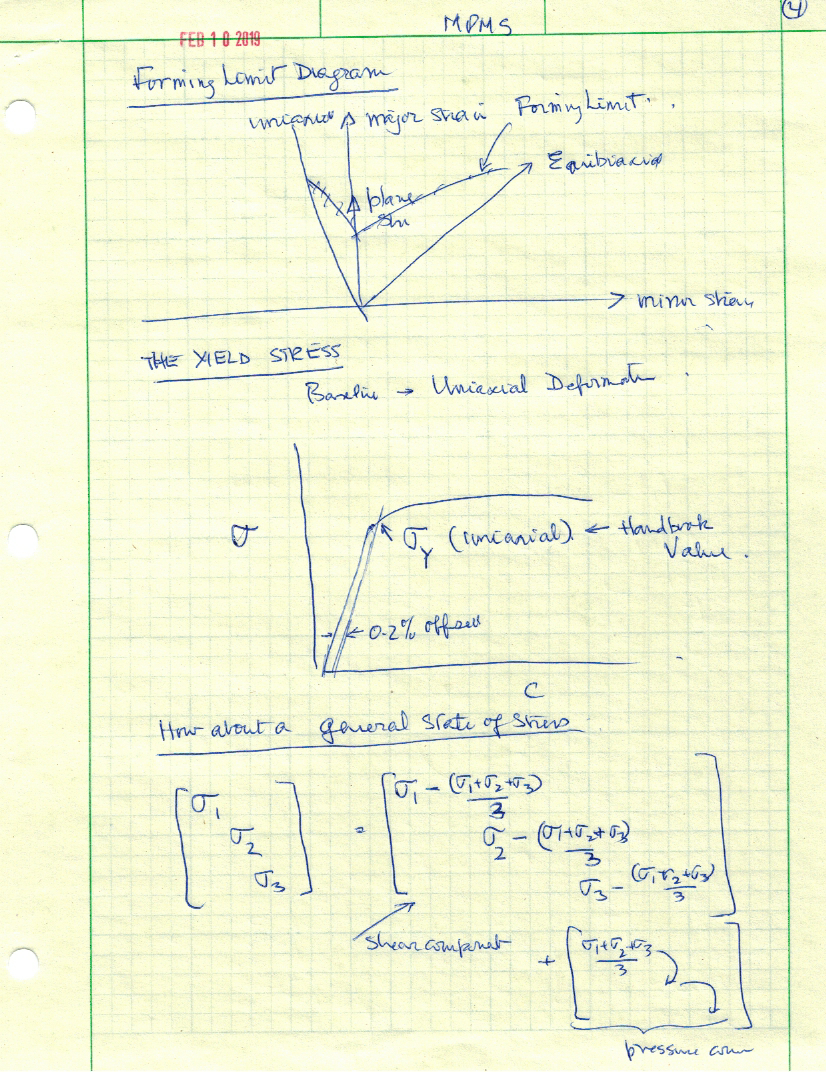 MPMS
4
FEB 1 0 2019
Forming Limit Diagram
uniaxial major strain Forming Limit.
Equibiaxial
plane
str
minor strain
THE YIELD STRESS
Baseline → Uniaxial Deformation
σ
σ_Y (uniaxial) ← Handbook
Value.
0.2% offset
How about a general State of Stress
[σ₁ σ₂ σ₃] = [σ₁ - (σ₁+σ₂+σ₃)/3
σ₂ - (σ₁+σ₂+σ₃)/3
σ₃ - (σ₁+σ₂+σ₃)/3]
shear component
+ [(σ₁+σ₂+σ₃)/3]
pressure com